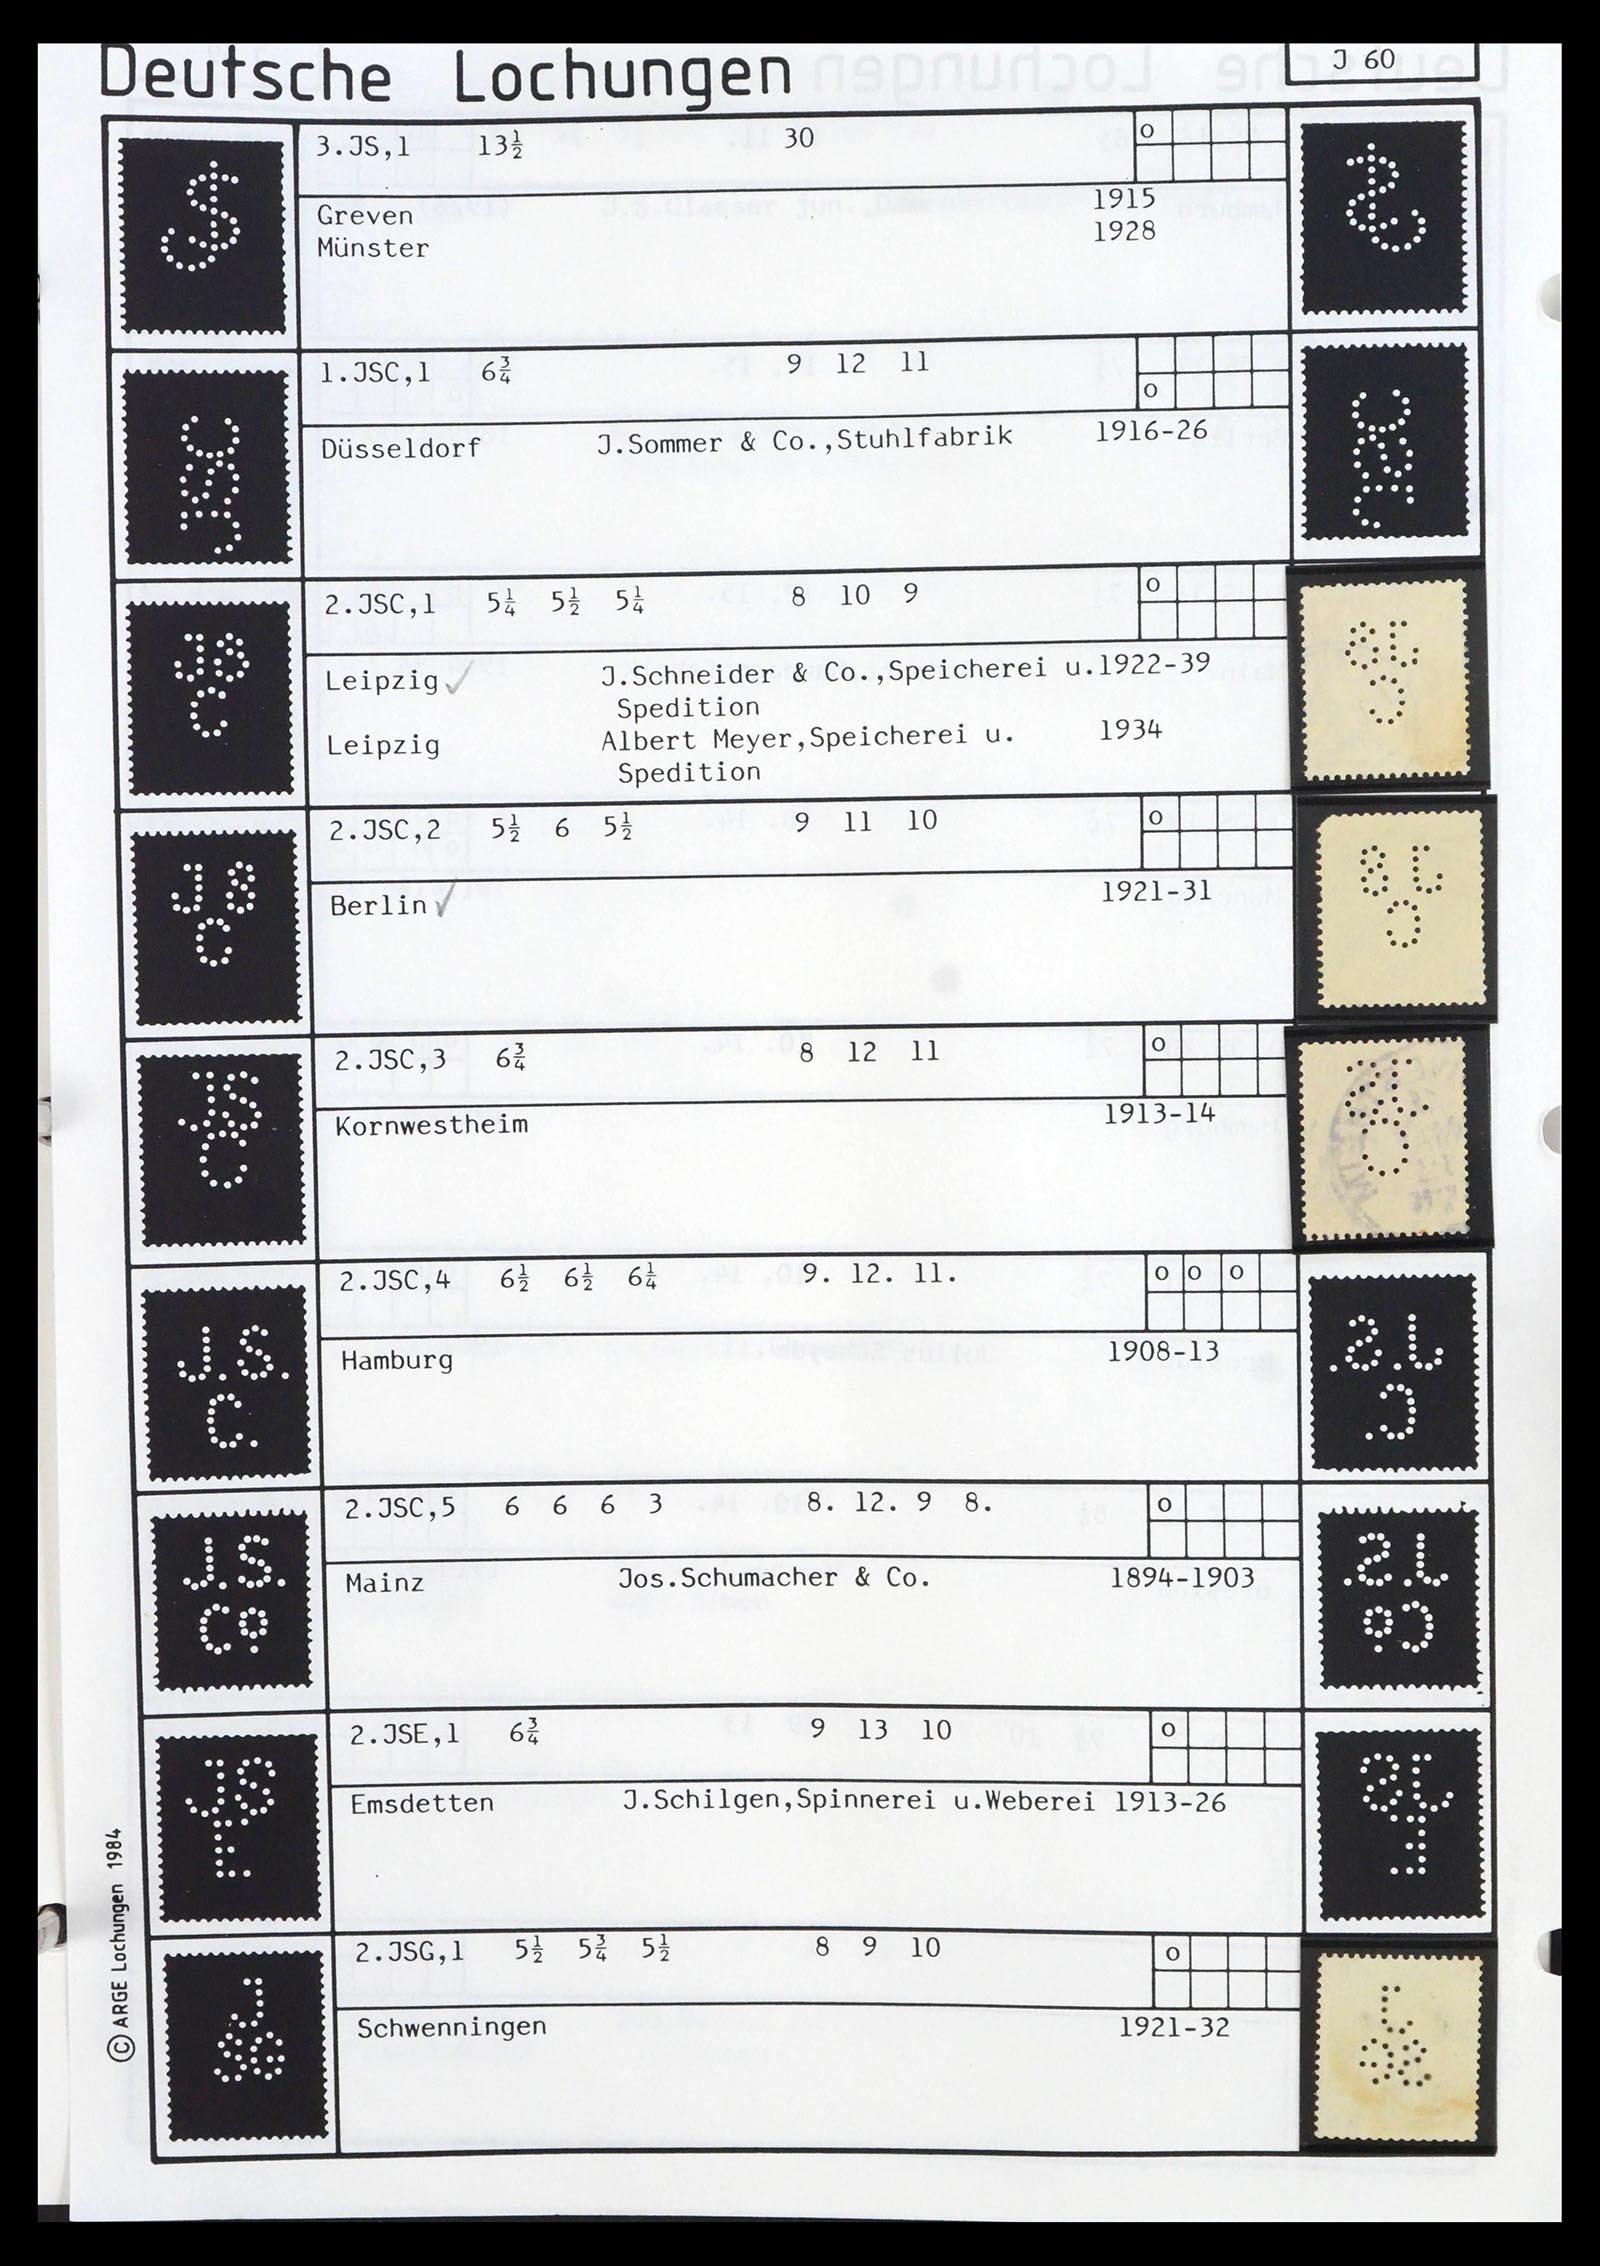 Deutsche Lochungen
J 60
3.JS,1 13½ 30 o
Greven 1915
Münster 1928
1.JSC,1 6¾ 9 12 11
o
Düsseldorf J.Sommer & Co.,Stuhlfabrik 1916-26
JSC
2.JSC,1 5¼ 5½ 5¼ 8 10 9 o
Leipzig✓ J.Schneider & Co.,Speicherei u.1922-39
Spedition
Leipzig Albert Meyer,Speicherei u. 1934
Spedition
JS
C
2.JSC,2 5½ 6 5½ 9 11 10 o
Berlin✓ 1921-31
JS
C
2.JSC,3 6¾ 8 12 11 o
Kornwestheim 1913-14
JS
C
2.JSC,4 6½ 6½ 6¼ 9. 12. 11. o o o
Hamburg 1908-13
J.S.
C.
2.JSC,5 6 6 6 3 8. 12. 9 8. o
Mainz Jos.Schumacher & Co. 1894-1903
J.S.
Co.
2.JSE,1 6¾ 9 13 10 o
Emsdetten J.Schilgen,Spinnerei u.Weberei 1913-26
JS
E
2.JSG,1 5½ 5¾ 5½ 8 9 10 o
Schwenningen 1921-32
J
SG
© ARGE Lochungen 1984